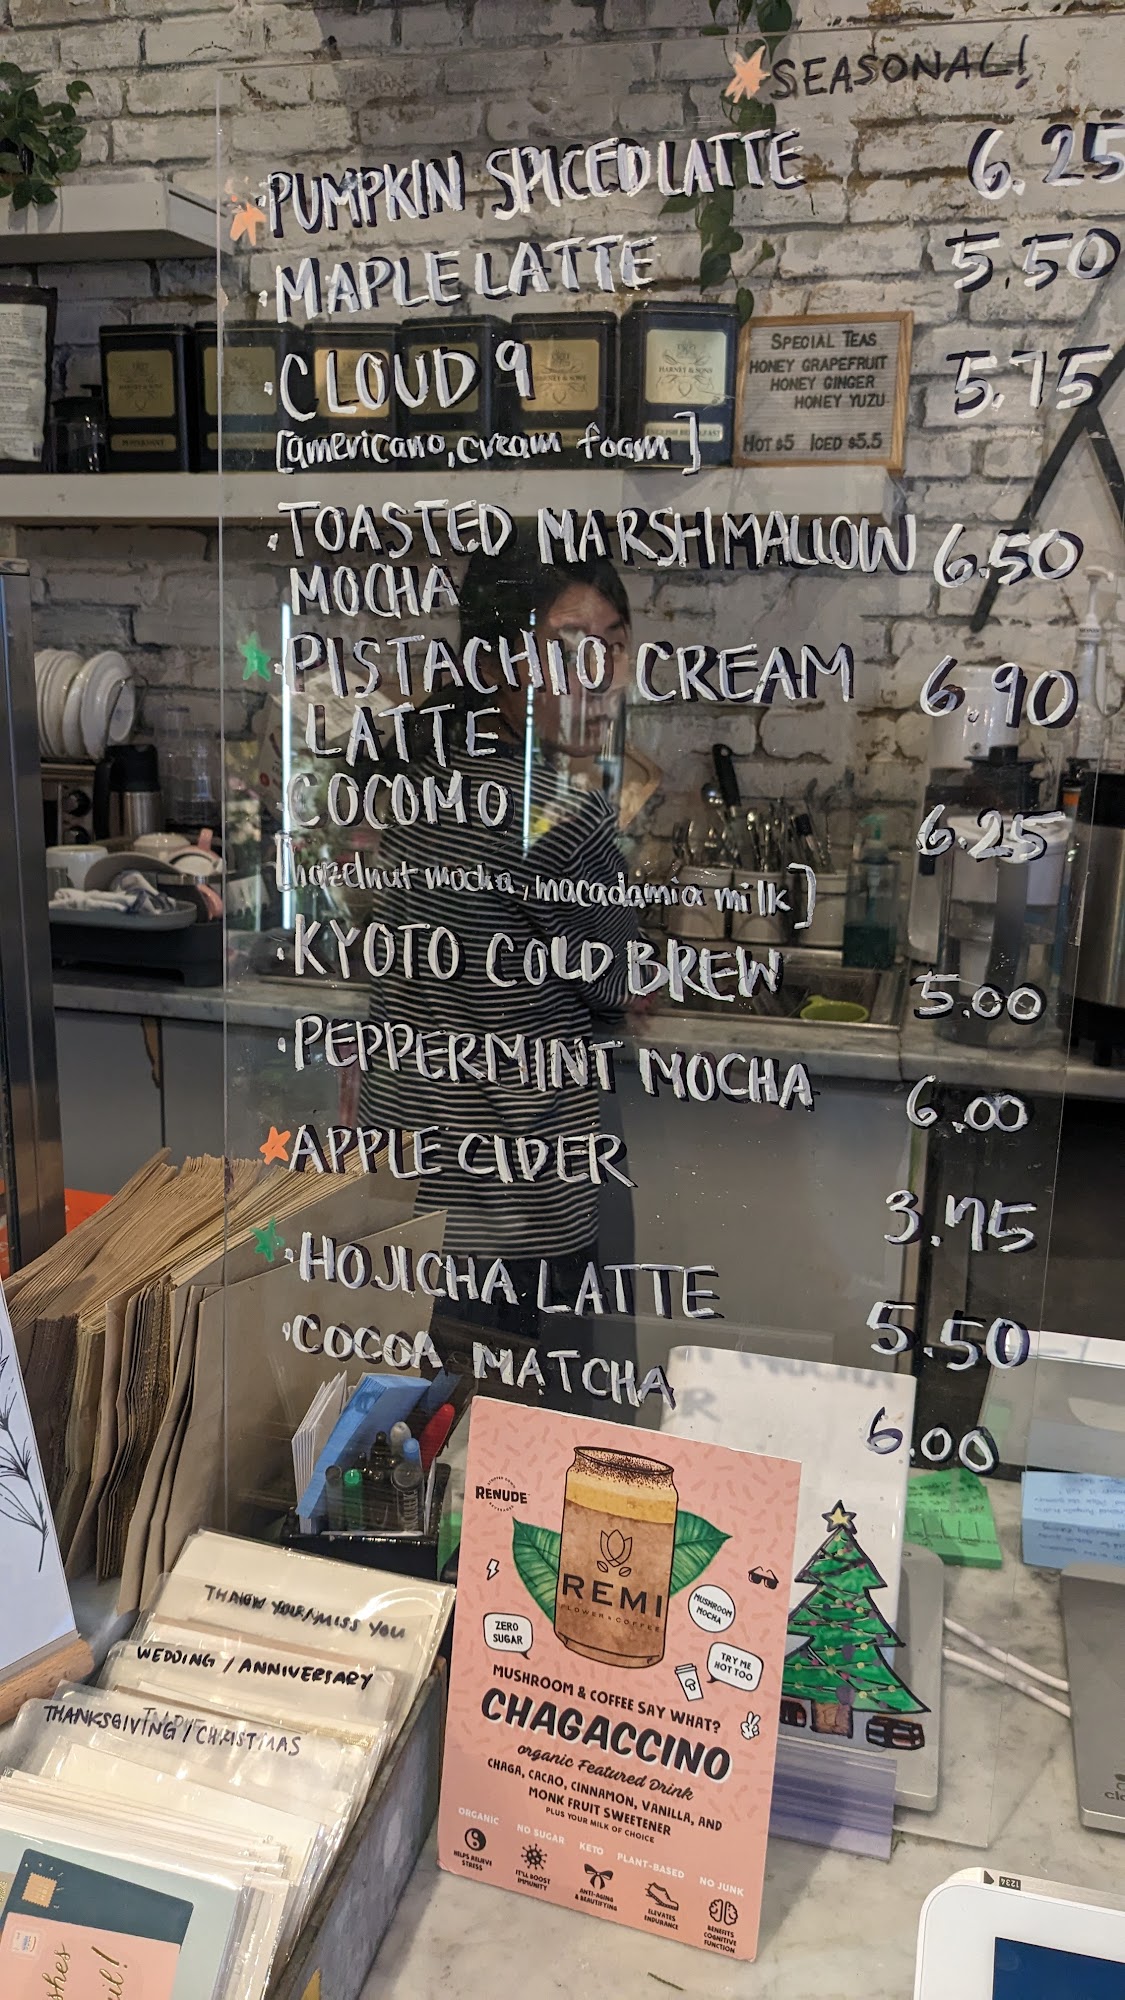 SEASONAL!
PUMPKIN SPICED LATTE 6.25
MAPLE LATTE 5.50
CLOUD 9 5.75
[americano, cream foam]
TOASTED MARSHMALLOW 6.50
MOCHA
PISTACHIO CREAM 6.90
LATTE
COCOMO 6.25
[hazelnut mocha, macadamia milk]
KYOTO COLD BREW 5.00
PEPPERMINT MOCHA 6.00
APPLE CIDER 3.75
HOJICHA LATTE 5.50
COCOA MATCHA 6.00
SPECIAL TEAS
HONEY GRAPEFRUIT
HONEY GINGER
HONEY YUZU
HOT $5 ICED $5.5
HARNEY & SONS
PEPPERMINT
ENGLISH BREAKFAST
THANK YOU/MISS YOU
WEDDING / ANNIVERSARY
THANKSGIVING / CHRISTMAS
RENUDE
REMI
FLOWER & COFFEE
MUSHROOM
MOCHA
ZERO
SUGAR
TRY ME
HOT TOO
MUSHROOM & COFFEE SAY WHAT?
CHAGACCINO
organic Featured Drink
CHAGA, CACAO, CINNAMON, VANILLA, AND
MONK FRUIT SWEETENER
PLUS YOUR MILK OF CHOICE
ORGANIC NO SUGAR KETO PLANT-BASED NO JUNK
HELPS RELIEVE
STRESS
IT'LL BOOST
IMMUNITY
ANTI-AGING
& BEAUTIFYING
ELEVATES
ENDURANCE
BENEFITS
COGNITIVE
FUNCTION
1234